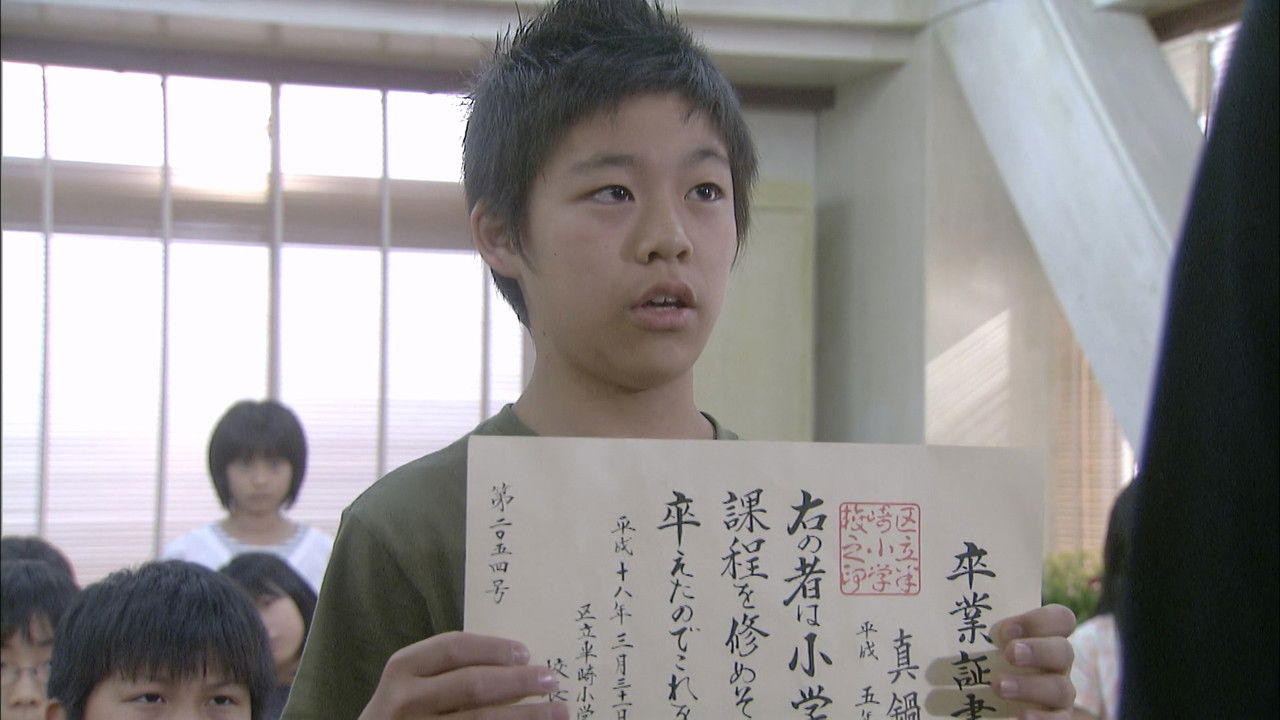 卒業証書
真鍋
平成 五年
区立半
崎小学
校之印
右の者は小学
課程を修めそ
卒えたのでこれを
平成十八年三月三十一日
区立半崎小学
校長
第二〇五四号